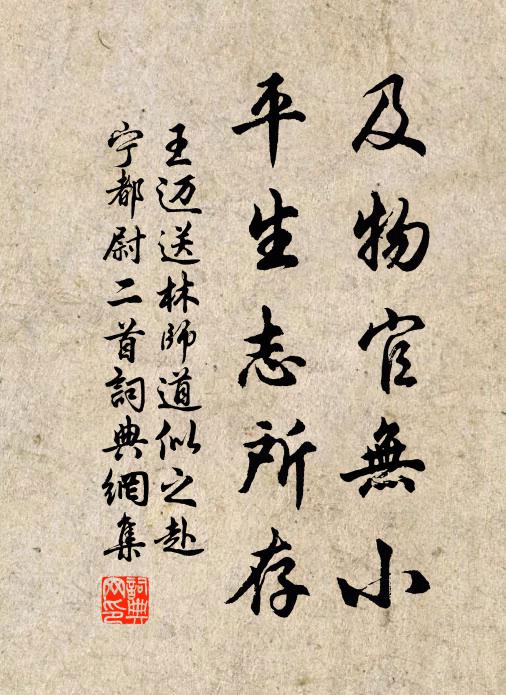 及物官無小
平生志所存
王迈送林師道似之赴
宁都尉二首詞典網集
詞典
网印